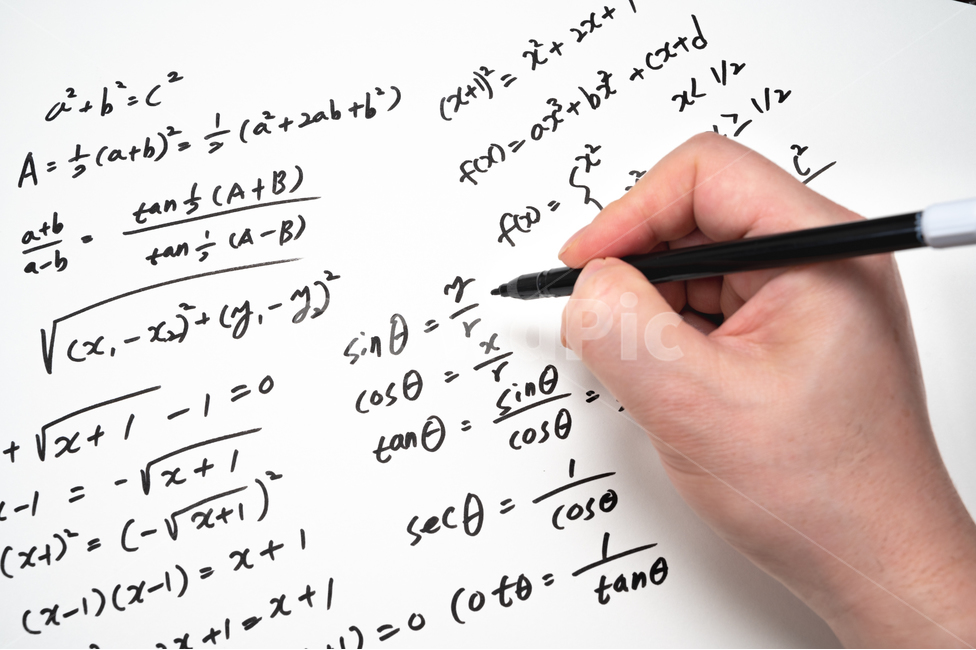 a² + b² = c²
A = 1/2 (a+b)² = 1/2 (a² + 2ab + b²)
(a+b)/(a-b) = tan 1/2 (A+B) / tan 1/2 (A-B)
√((x₁ - x₂)² + (y₁ - y₂)²)
+ √(x+1) - 1 = 0
x-1 = -√(x+1)
(x-1)² = (-√(x+1))²
(x-1)(x-1) = x+1
x+1 = x+1
= 0
(x+1)² = x² + 2x + 1
f(x) = ax³ + bx² + cx + d
x < 1/2
≥ 1/2
f(x) = { x²
sinθ = y/r
cosθ = x/r
tanθ = sinθ/cosθ =
secθ = 1/cosθ
cotθ = 1/tanθ
Pic